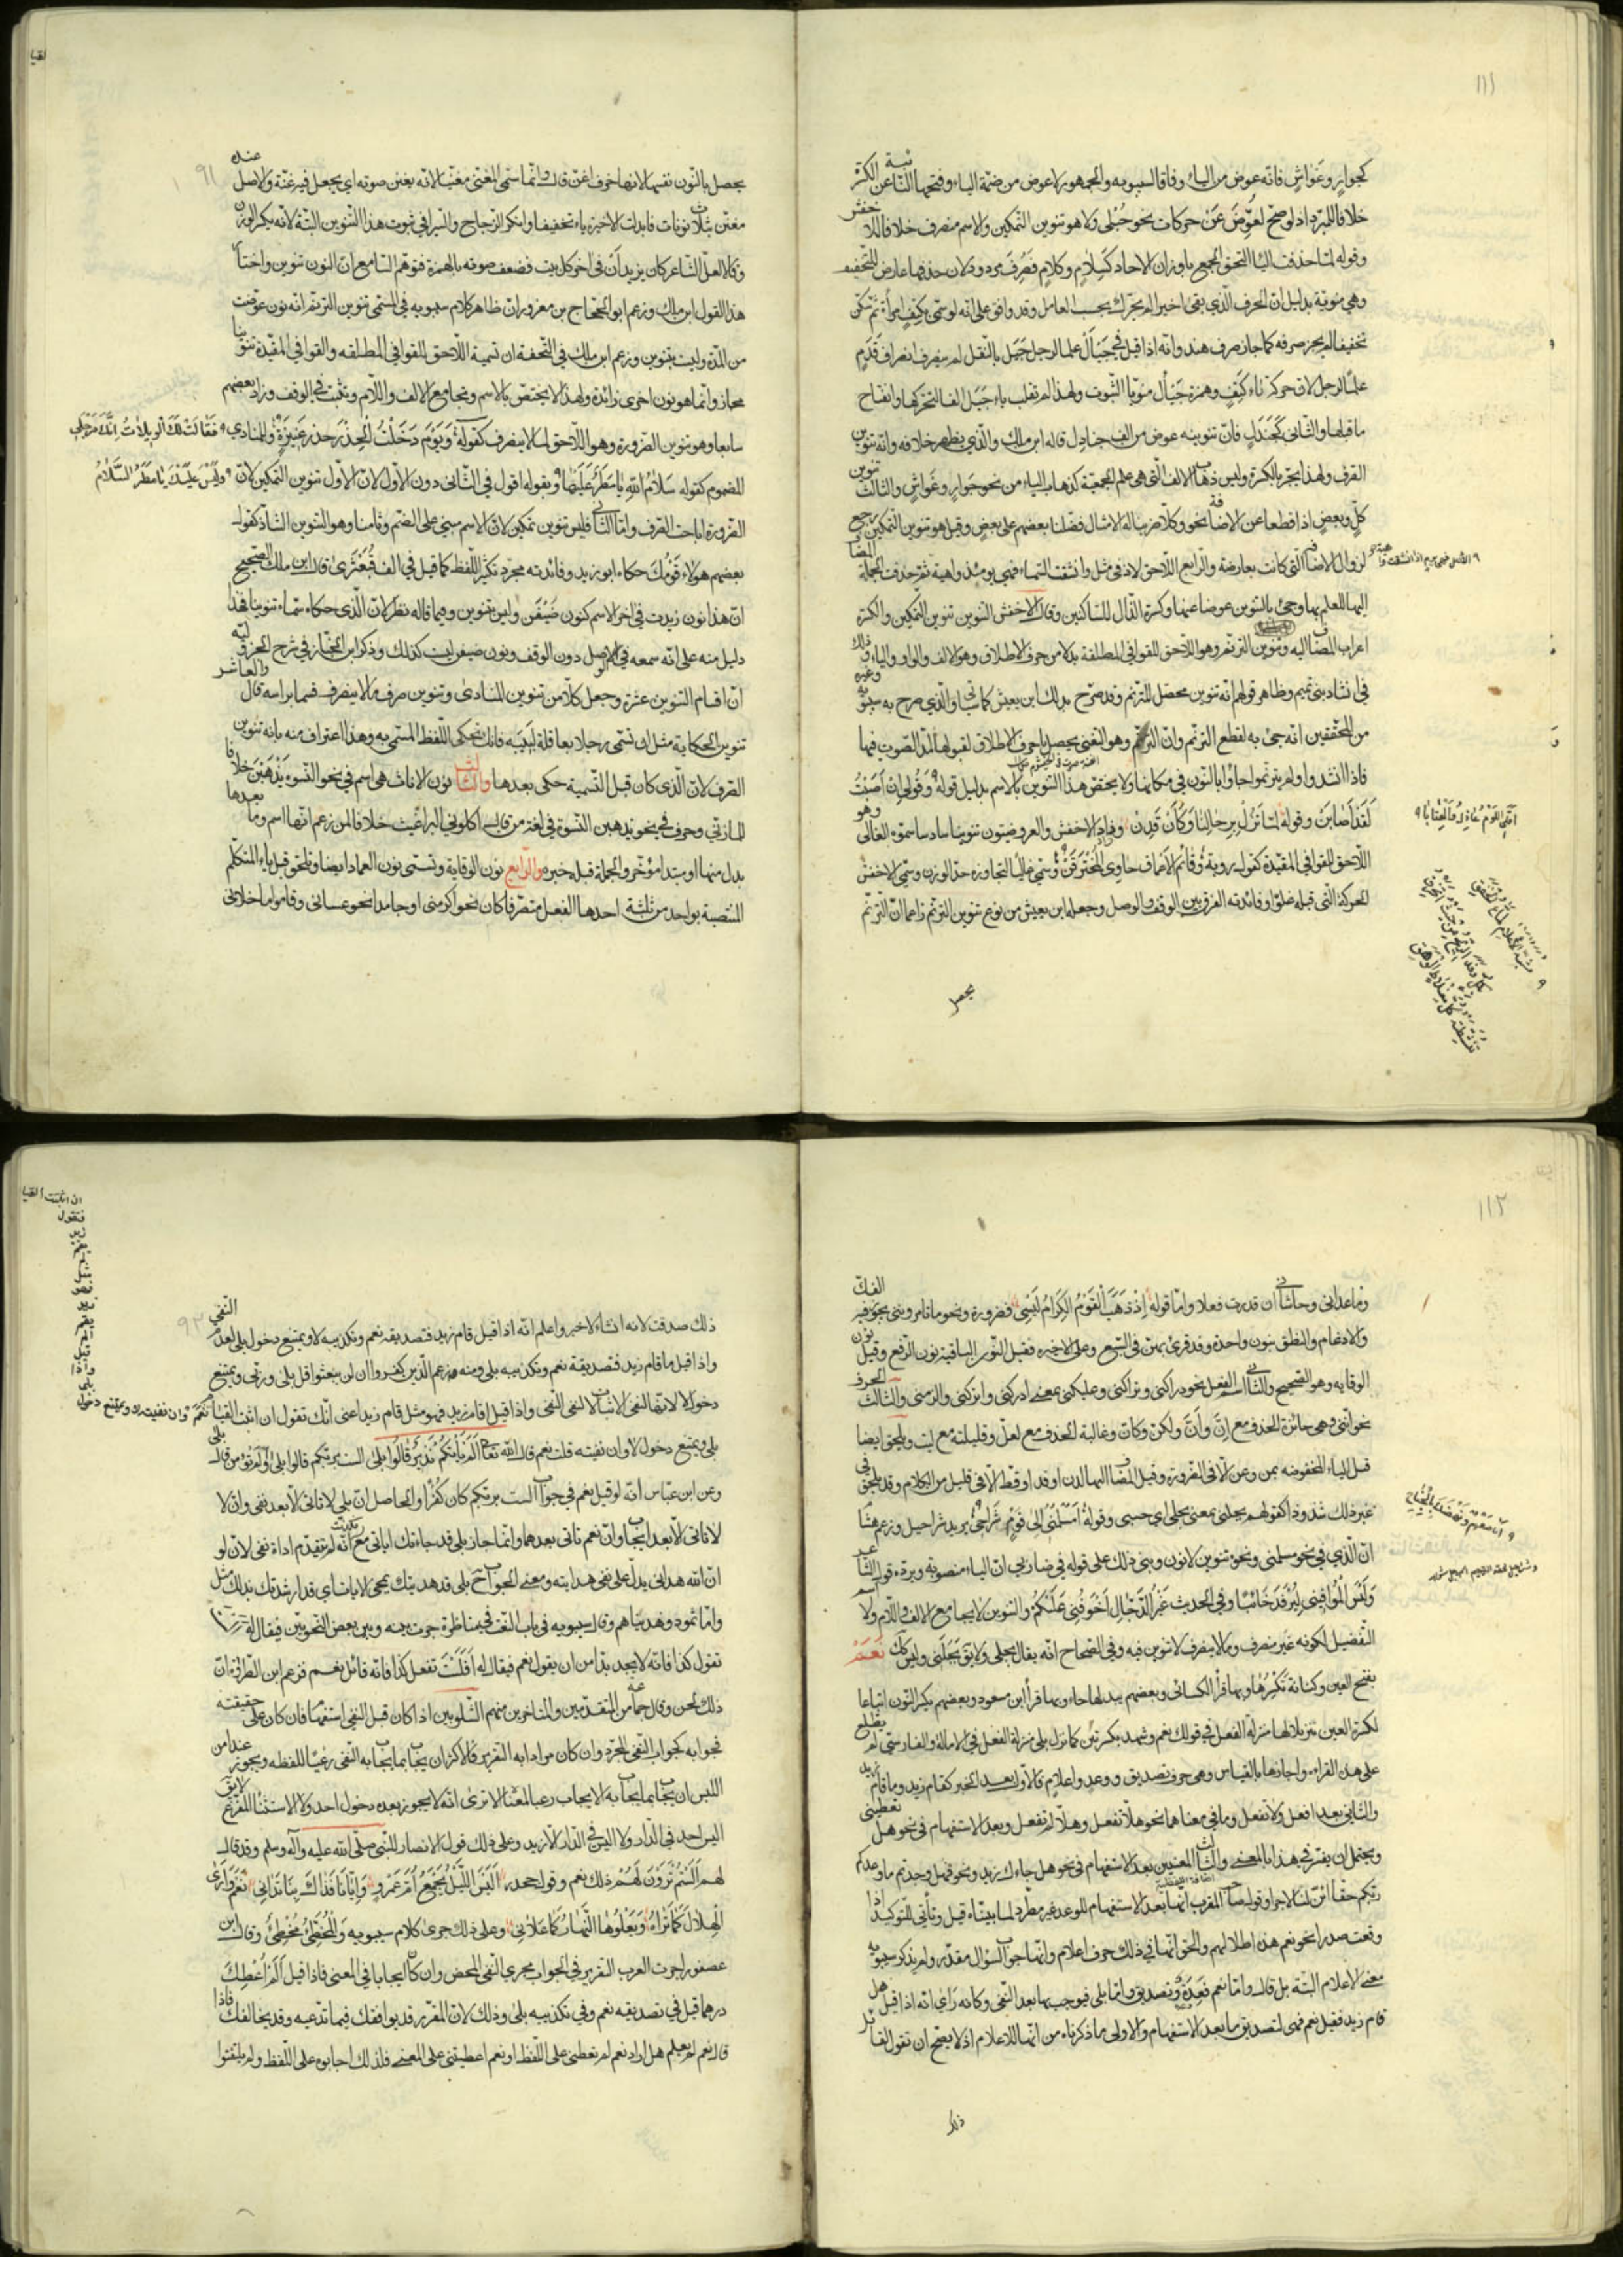 ١١١
كجوارٍ وغواشٍ فانّه عوض من الياء وفاقا لسيبويه والجمهور لا عوض من ضمّة الياء وفتحتها النائبة عن الكسرة
خلافا للمبرّد اذ لو صحّ لعُوِّضَ عَن حركات نحو حُبْلى ولا هو تنوين التمكين والاسم منصرف خلافا للاخفش
وقوله لمّا حذفت اليا التحق الجمع باوزان الاحاد كسَلامٍ وكلامٍ فصُرِف مردود لان حذفها عارض للتخفيف
وهي منويّة بدليل انّ الحرف الّذي بقى اخيرا لم يحرّك بحسب العامل وقد وافق على انّه لو سمّى بكَتِفٍ امرأة ثمّ سكّن
تخفيفا لم يجز صرفه كما جاز صرف هند وانّه اذا قيل في جَيْأَلَ علما لرجل جَيَل بالنّقل لم ينصرف انصراف قَدَمٍ
علمًا لرجل لانّ حركة تاء كَتِفٍ وهمزة جَيْأل منويّا الثّبوت ولهذا لم تقلب ياء جَيَل الفا لتحرّكها وانفتاح
ما قبلها والثّانى كَجَنَدلٍ فانّ تنوينه عوض من الف جنادل قاله ابن مالك والّذي يظهر خلافه وانّه تنوين
الصّرف ولهذا يجرّ بالكسرة وليس ذهاب الالف الّتى هي علم الجمعيّة كذهاب الياء من نحو جَوارٍ وغَواشٍ والثّالث تنوين
كلّ وبعضٍ اذا قطعا عن الاضافة نحو وكلّا ضربنا له الامثال فضّلنا بعضهم على بعضٍ وقيل هو تنوين التمكين رجع
لزوال الاضافة الّتى كانت تعارضه والرّابع اللّاحق لاذ في مثل وانشقّت السّماء فهي يومئذ واهية
اليها للعلم بها وجئ بالتنوين عوضا عنها وكسرة الذّال للسّاكنين وقال الاخفش التّنوين تنوين التّمكين والكسرة
اعراب المضاف اليه وتنوين الترنّم وهو اللّاحق للقوافي المطلقة بدلا من حرف الاطلاق وهو الالف والواو والياء وذلك
في انشاد بنى تميم وظاهر قولهم انّه تنوين محصّل للترنّم وقد صرّح بذلك ابن يعيش كما سيأتى والّذي صرح به سيبويه وغيره
من المحقّقين انّه جئ به لقطع الترنّم وانّ الترنّم وهو التغنّى يحصل باحرف الاطلاق لقبولها لمدّ الصّوت فيها
فاذا انشدوا ولم يترنّموا جاؤا بالنّون في مكانها ولا يختصّ هذا التّنوين بالاسم بدليل قوله وَقُولى اِنْ اَصَبْتُ
لَقَدْ اَصَابَن وقوله لمّا تَزُلْ بِرِحالِنا وَكَأَن قَدِنْ وزاد الاخفش والعروضيّون تنوينا سادسا سمّوه الغالى وهو
اللّاحق للقوافي المقيّدة كقول رؤبة وَقَاتِمِ الاَعْمَاقِ خاوِي الْمُخْتَرَقَنْ وسمّي غاليًا لتجاوزه حدّ الوزن وسمّي الاخفش
الحركة الّتى قبله غلوّا وفائدته الفرق بين الوقف والوصل وجعله ابن يعيش من نوع تنوين الترنّم زاعما انّ الترنّم
اَقِلِّى اللَّوْمَ عَاذِلُ وَالْعِتَابَا
يحصل
٩١
يحصل بالنّون نفسها لانها حرف اغنّ قال وانّما سمّى المغنّى مغنّيا لانّه يغنّن صوته اي يجعل فيه غنّة والاصل عنده
مغنّن بثلاث نونات فابدلت الاخيرة ياء تخفيفا وانكر الزّجاج والسّيرافي ثبوت هذا التّنوين البتّة لانّه يكسر الوزن
وقالا لعلّ الشّاعر كان يزيد اَن في اخر كلّ بيت فضعف صوته بالهمزة فتوهّم السّامع انّ النون تنوين واختار
هذا القول ابن مالك وزعم ابو الحجّاج بن معزوز انّ ظاهر كلام سيبويه في المسمّى تنوين الترنّم انّه نون عوّضت
من المدّة وليست بتنوين وزعم ابن مالك في التّحفة ان تسمية اللّاحق للقوافي المطلقة والقوافي المقيّدة تنوينا
مجاز وانّما هو نون اخرى زائدة ولهذا لا يختصّ بالاسم ويجامع الالف واللّام ويثبت في الوقف وزاد بعضهم
سابعا وهو تنوين الضّرورة وهو اللّاحق لما لا ينصرف كقوله وَيَوْمَ دَخَلْتُ الْخِدْرَ خِدْرَ عُنَيْزَةٍ وللمنادي فَقَالَتْ لَكَ الْوَيْلاَتُ اِنَّكَ مُرْجِلِي
المضموم كقوله سَلاَمُ اللهِ يا مَطَرٌ عَلَيْها وبقوله اقول في الثّانى دون الاوّل لانّ الاوّل تنوين التّمكين لانّ وَلَيْسَ عَلَيْكَ يَا مَطَرُ السَّلاَمُ
الضّرورة اباحت الصّرف وامّا الثّانى فليس تنوين تمكين لانّ الاسم مبنيّ على الضّم وثامنا وهو التّنوين الشّاذ كقول
بعضهم هولاءٍ قَوْمُكَ حكاه ابو زيد وفائدته مجرّد تكثير اللّفظ كما قيل في الف قَبَعْثَرى قال ابن مالك الصّحيح
انّ هذا نون زيدت في اخر الاسم كنون ضَيْفَن وليس بتنوين وفيما قاله نظر لانّ الّذي حكاه سمّاه تنوينا فهذا
دليل منه على انّه سمعه في الوصل دون الوقف ونون ضيفن ليست كذلك وذكر ابن الخبّاز في شرح الجزوليّة
انّ اقسام التّنوين عشرة وجعل كلّا من تنوين المنادى وتنوين صرف ما لا ينصرف قسما براسه قال والعاشر
تنوين الحكاية مثل ان تسمّي رجلا بعاقلة لبيبة فانّك تحكى اللّفظ المسمّى به وهذا اعتراف منه بانّه تنوين
الصّرف لانّ الّذي كان قبل التّسمية حكى بعدها والثّالث نون الاناث هي اسم في نحو النّسوة يذهبن خلافا
للمازنى وحرف في نحو يذهبن النّسوة في لغة من قال اكلونى البراغيث خلافا لمن زعم انّها اسم وما بعدها
بدل منها او مبتدا مؤخّر والجملة قبله خبره والرّابع نون الوقاية وتسمّى نون العماد ايضا وتلحق قبل ياء المتكلّم
المنتصبة بواحد من ثلثة احدها الفعل متصرّفا كان نحو اكرمنى او جامدا نحو عسانى وقاموا ما خلانى
١١٢
وما عدانى وحاشانى ان قدرت فعلا وامّا قوله اِذْ ذَهَبَ الْقَوْمُ الكِرَامُ لَيْسِى فضرورة ونحو تامرونى يجوز فيه الفكّ
والادغام والنطق بنون واحدة وقد قرئ بهنّ في السّبع وعلى الاخيرة فقيل النّون الباقية نون الرّفع وقيل نون
الوقاية وهو الصّحيح والثّانى اسم الفعل نحو دراكنى وتراكنى وعليكنى بمعنى ادركنى واتركنى والزمنى والثّالث الحرف
نحو انّنى وهي جائزة الحذف مع اِنَّ واَنَّ ولكنّ وكانّ وغالبة الحذف مع لعلّ وقليلته مع ليت وتلحق ايضا
قبل الياء المخفوضة بمن وعن الّا في الضّرورة وقبل المضاف اليها لدن او قد او قطّ الّا في قليل من الكلام وقد تلحق في
غير ذلك شذوذا كقولهم بجلنى بمعنى بجلى اي حسبى وقوله اَمُسْلِمُنِى اِلى قَوْمِي شَرَاحِى يريد شراحيل وزعم هشام
انّ الّذي في نحو مسلمنى ونحوه تنوين لا نون وبنى ذلك على قوله في ضاربى ان الياء منصوبة ويردّه قول الشّاعر
وَلَيْسَ الْمُوَافِينِى لِيُرْفَدَ خَائِبًا وفي الحديث غَيْرُ الدَّجَّالِ اَخْوَفُنِى عَلَيْكُمْ والتنوين لا يجامع الالف واللّام ولا اسم
التّفضيل لكونه غير منصرف وما لا ينصرف لا تنوين فيه وفي الصّحاح انّه يقال بجلى ولا يقال بجلنى وليس كذلك نَعَمْ
بفتح العين وكنانة تكسرها وبها قرأ الكسائى وبعضهم يبدلها حاء وبها قرأ ابن مسعود وبعضهم يكسر النّون اتباعا
لكسرة العين تنزيلا لها منزلة الفعل في قولك نِعِم وشِهِد بكسرتين كما نزل بلى منزلة الفعل في الامالة والفارسيّ لم يطّلع
على هذه القراءة واجازها بالقياس وهي حرف تصديق ووعد واعلام فالاوّل بعد الخبر كقام زيد وما قام زيد
والثّانى بعد افعل ولا تفعل وما في معناهما نحو هلّا تفعل وهلّا لم تفعل وبعد الاستفهام في نحو هل تعطينى
ويحتمل ان يفسّر في هذا بالمعنى والثّالث المعنيين بعد الاستفهام في نحو هل جاءك زيد ونحو فهل وجدتم ما وعدكم
ربّكم حقّا انّ لنا لاجرا وقول صاحب المقرّب انّها بعد الاستفهام للوعد غير مطّرد لما بيّناه قيل وتأتى للتوكيد اذا
وقعت صدرا نحو نعم هذه اطلالهم والحق انّها في ذلك حرف اعلام وانّها جواب لسؤال مقدّر ولم يذكر سيبويه
معنى الاعلام البتّة بل قال وامّا نعم فعِدَةٌ وتصديق وامّا بلى فيوجب بها بعد النّفى وكانّه رَاى انّه اذا قيل هل
قام زيد فقيل نعم فهى لتصديق ما بعد الاستفهام والاولى ما ذكرناه من انّها للاعلام اذ لا يصحّ ان تقول لقائل
ذلك
٩٢
ذلك صدقت لانه انشاء لا خبر واعلم انّه اذا قيل قام زيد فتصديقه نعم وتكذيبه لا ويمتنع دخول بلى لعدم النّفى
واذا قيل ما قام زيد فتصديقه نعم وتكذيبه بلى ومنه زعم الّذين كفروا ان لن يبعثوا قل بلى وربّى ويمتنع
دخول لا لانّها لنفى الاثبات لا لنفى النّفى واذا قيل اقام زيد فهو مثل قام زيد اعنى انّك تقول ان اثبتّ القيام نعم وان نفيته لا ويمتنع دخول
بلى ويمتنع دخول لا وان نفيته قلت نعم قال اللّه تعالى اَلَمْ يَأْتِكُمْ نَذِيرٌ قَالُوا بَلى الست بربّكم قالوا بلى اولم تؤمن قال بلى
وعن ابن عبّاس انّه لو قيل نعم في جواب الست بربّكم كان كفرًا والحاصل انّ بلى لا تاتى الّا بعد نفى وانّ لا
لا تاتى الّا بعد ايجاب وانّ نعم تاتى بعدهما وانّما جاز بلى قد جاءتك اياتى مع انّه لم يتقدّم اداة نفى لانّ لو
انّ اللّه هدانى يدلّ على نفى هدايته ومعنى الجواب ح بلى قد هديتك بمجئ الايات اي قد ارشدتك بذلك مثل
وامّا ثمود فهديناهم وقال سيبويه في باب النّعت في مناظرة جرت بينه وبين بعض النّحويّين فيقال له
تقول كذا فانّه لا يجد بدّا من ان يقول نعم فيقال له اَفَلَسْتَ تفعل كذا فانّه قائل نعم فزعم ابن الطّراوة انّ
ذلك لحن وقال جماعة من المتقدّمين والمتاخّرين منهم الشّلوبين اذا كان قبل النّفى استفهام فان كان على حقيقته
فجوابه كجواب النّفى المجرّد وان كان مرادا به التّقرير فالاكثر ان يجاب بما يجاب به النّفى رعيًا للفظه ويجوز عند امن
اللبس ان يجاب بما يجاب به الايجاب رعيا لمعناه الا ترى انّه لا يجوز بعده دخول احد ولا الاستثناء المفرّغ لا يقال
اليس احد في الدّار ولا اليس في الدّار الّا زيد وعلى ذلك قول الانصار للنّبى صلّى الله عليه وآله وسلم وقد قال
لهم اَلَسْتُمْ تَرَوْنَ لَهُمْ ذلك نعم وقول جحدر اَلَيْسَ اللَّيْلُ يَجْمَعُ اُمَّ عَمْرٍو وَاِيَّانَا فَذَاكَ بِنَا تَدَانِى نَعَمْ وَاَرَى
الْهِلاَلَ كَمَا تَرَاهُ وَيَعْلُوهَا النَّهَارُ كَمَا عَلاَنِى وعلى ذلك جرى كلام سيبويه وَالْمُخَطِّئُ مُخْطِئٌ وقال ابن
عصفور اجرت العرب التقرير في الجواب مجرى النّفى المحض وان كان ايجابا في المعنى فاذا قيل اَلَمْ اُعْطِكَ
درهما قيل في تصديقه نعم وفي تكذيبه بلى وذلك لانّ المقرّر قد يوافقك فيما تدّعيه وقد يخالفك فاذا
قال نعم لم يعلم هل اراد نعم لم تعطنى على اللّفظ او نعم اعطيتنى على المعنى فلذلك اجابوه على اللّفظ ولم يلتفتوا